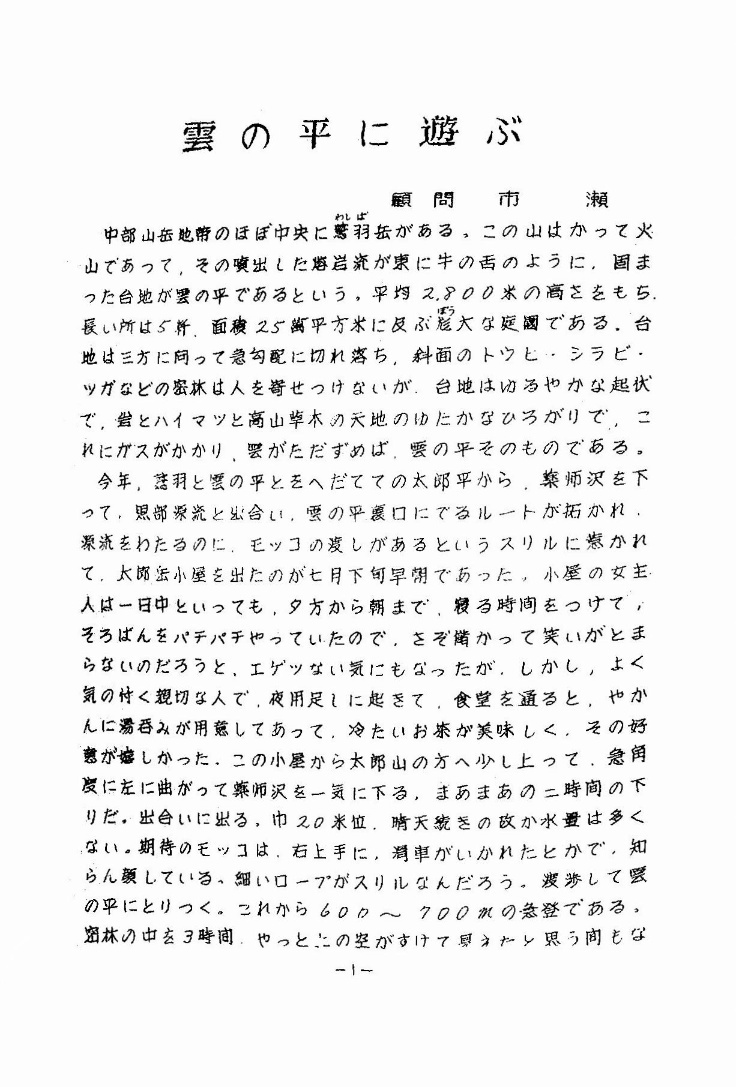 雲の平に遊ぶ
顧問 市 瀬
中部山岳地帯のほぼ中央に鷲羽岳がある。この山はかって火
わしば
山であって、その噴出した熔岩流が東に牛の舌のように、固ま
った台地が雲の平であるという。平均2,800米の高さをもち、
長い所は5粁、面積25萬平方米に及ぶ厖大な庭園である。台
ぼう
地は三方に向って急勾配に切れ落ち、斜面のトウヒ・シラビ・
ツガなどの密林は人を寄せつけないが、台地はゆるやかな起伏
で、岩とハイマツと高山草木の天地のゆたかなひろがりで、こ
れにガスがかかり、雲がただずめば、雲の平そのものである。
今年、鷲羽と雲の平とをへだてての太郎平から、薬師沢を下
って、黒部源流と出合い、雲の平裏口にでるルートが拓かれ、
源流をわたるのに、モッコの渡しがあるというスリルに惹かれ
て、太郎小屋を出たのが七月下旬早朝であった。小屋の女主
人は一日中といっても、夕方から朝まで、寝る時間をつけて、
そろばんをパチパチやっていたので、さぞ儲かって笑いがとま
らないのだろうと、エゲツない気にもなったが、しかし、よく
気の付く親切な人で、夜用足しに起きて、食堂を通ると、やか
んに湯呑みが用意してあって、冷たいお茶が美味しく、その好
意が嬉しかった。この小屋から太郎山の方へ少し上って、急角
度に左に曲がって薬師沢を一気に下る。まあまあの二時間の下
りだ。出合いに出る。巾20米位、晴天続きの故か水量は多く
ない。期待のモッコは、右上手に、滑車がいかれたとかで、知
らん顔している。細いロープがスリルなんだろう。渡渉して雲
の平にとりつく。これから600〜700mの急登である。
密林の中を3時間、やっとこの空がすけて見えたと思う間もな
-1-